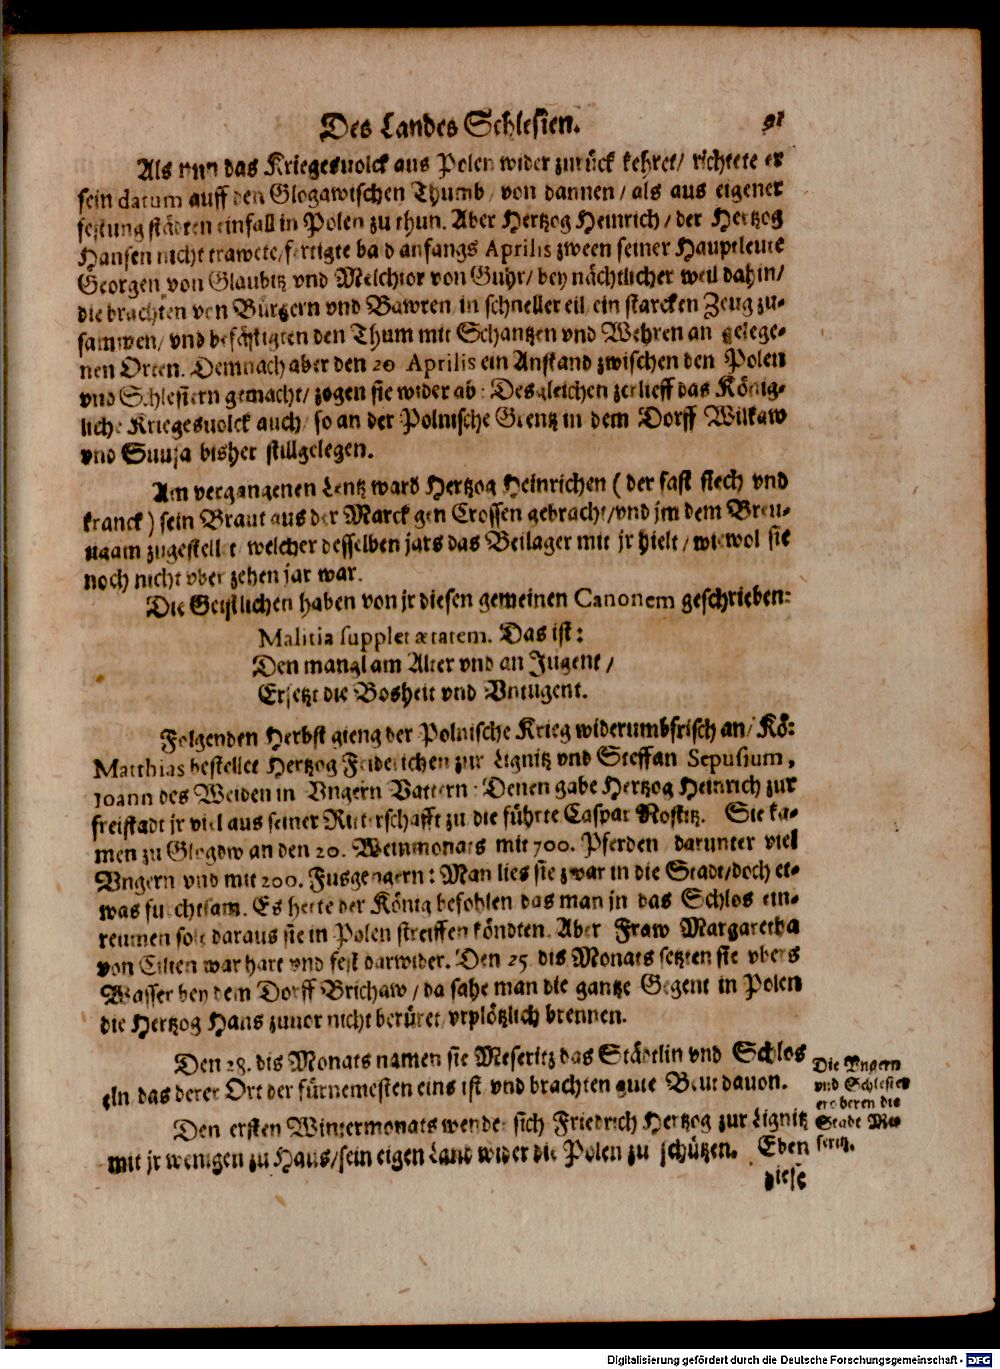 Des Landes Schlesien. 91
Als nun das Kriegesuolck aus Polen wider zurück kehret/ richtete er
sein datum auff den Glogawischen Thumb/ von dannen/ als aus eigener
festung städten einfall in Polen zu thun. Aber Hertzog Heinrich/ der Hertzog
Hansen nicht trawete/ fertigte bald anfangs Aprilis zween seiner Hauptleute
Georgen von Glaubitz vnd Melchior von Guhr/ bey nächtlicher weil dahin/
die brachten von Bürgern vnd Bawren in schneller eil ein starcken Zeug zu-
samwen/ vnd befästigten den Thum mit Schantzen vnd Wehren an gelege-
nen Orten. Demnach aber den 20 Aprilis ein Anstand zwischen den Polen
vnd Schlesiern gemacht/ zogen sie wider ab: Desgleichen zerlieff das König-
liche Kriegesuolck auch/ so an der Polnische Grentz in dem Dorff Wilkaw
vnd bisher stillgelegen.
Am vergangenen Lentz ward Hertzog Heinrichen ( der fast siech vnd
kranck ) sein Braut aus der Marck gen Crossen gebracht/ vnd jm dem Breu-
ugam zugestellet/ welcher desselben jars das Beilager mit jr hielt/ wiewol sie
noch nicht vber zehen jar war.
Die Geistlichen haben von jr diesen gemeinen Canonem geschrieben:
Malitia supplet ætatem. Das ist:
Den mangl am Alter vnd an Jugent/
Ersetzt die Bosheit vnd Vntugent.
Folgenden Herbst gieng der Polnische Krieg widerumb frisch an/ Kö:
Matthias bestellet Hertzog Friderichen zur Lignitz vnd Steffan Sepusium,
Joann des Weiden in Vngern Vattern: Denen gabe Hertzog Heinrich zur
freistadt jr viel aus seiner Ritterschafft zu die führte Caspar Nostitz. Sie ka-
men zu Glogow an den 20. Weinmonats mit 700. Pferden darunter viel
Vngern vnd mit 200. Fusgengern: Man lies sie zwar in die Stadt/ doch et-
was furchtsam. Es hette der König befohlen das man jn das Schlos ein-
reumen solt daraus sie in Polen streiffen köndten. Aber Fraw Margaretha
von Cilien war hart vnd fest darwider. Den 25 dis Monats setzten sie vbers
Wasser bey dem Dorff Brichaw/ da sahe man die gantze Gegent in Polen
die Hertzog Hans zuuor nicht berüret/ vrplötzlich brennen.
Den 28. dis Monats namen sie Meseritz das Städtlin vnd Schlos
ein das derer Ort der fürnemesten eins ist vnd brachten gute Beut dauon.
Die Vngern
vnd Schlesier
eroberen die
Stadt Me-
seritz.
Den ersten Wintermonats wendet sich Friedrich Hertzog zur Lignitz
mit jr wenigen zu Haus/ sein eigen Land wider die Polen zu schützen. Eben
diese
Digitalisierung gefördert durch die Deutsche Forschungsgemeinschaft - DFG